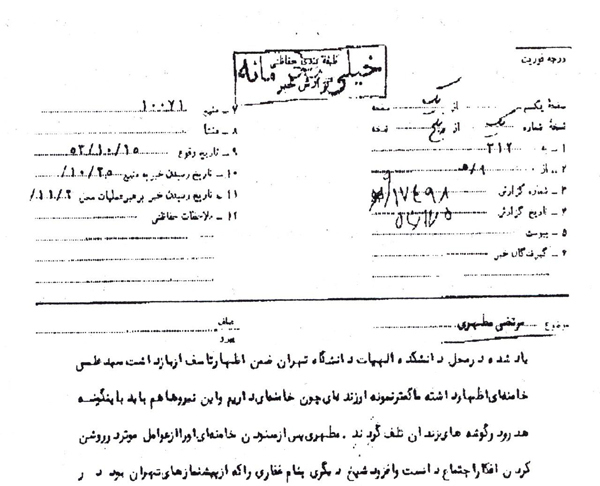 درجه فوریت
طبقه بندی حفاظتی
خیلی محرمانه
گزارش خبر
صفحه یکم از یک صفحه
نسخه شماره یک از پنج نسخه
۱ ـ به ۳۱۲
۲ ـ از ۹ه‍
۳ ـ شماره گزارش ۱۷۴۹۸
۴ ـ تاریخ گزارش
۵ ـ پیوست
۶ ـ گیرندگان خبر
۷ ـ منبع ۱۰۰۷۱
۸ ـ منشأ
۹ ـ تاریخ وقوع ۵۳/۱۰/۱۵
۱۰ ـ تاریخ رسیدن خبر به منبع ۱۰/۲۵/
۱۱ ـ تاریخ رسیدن خبر برهبر عملیات محل ۱۱/۲/
۱۲ ـ ملاحظات حفاظتی
موضوع مرتضی مطهری
عطف
پیرو
یاد شده در محل دانشکده الهیات دانشگاه تهران ضمن اظهار تاسف از بازداشت سید علی
خامنه‌ای اظهار داشته ما کمتر نمونه ارزنده‌ای چون خامنه‌ای داریم و این نیروها هم باید باینگونه
هدر رود و گوشه های زندان تلف گردند . مطهری پس از ستودن خامنه‌ای او را از عوامل موثر در روشن
کردن افکار اجتماع دانست و افزود شیخ دیگری بنام غفاری را که از پیشنمازهای تهران بود در